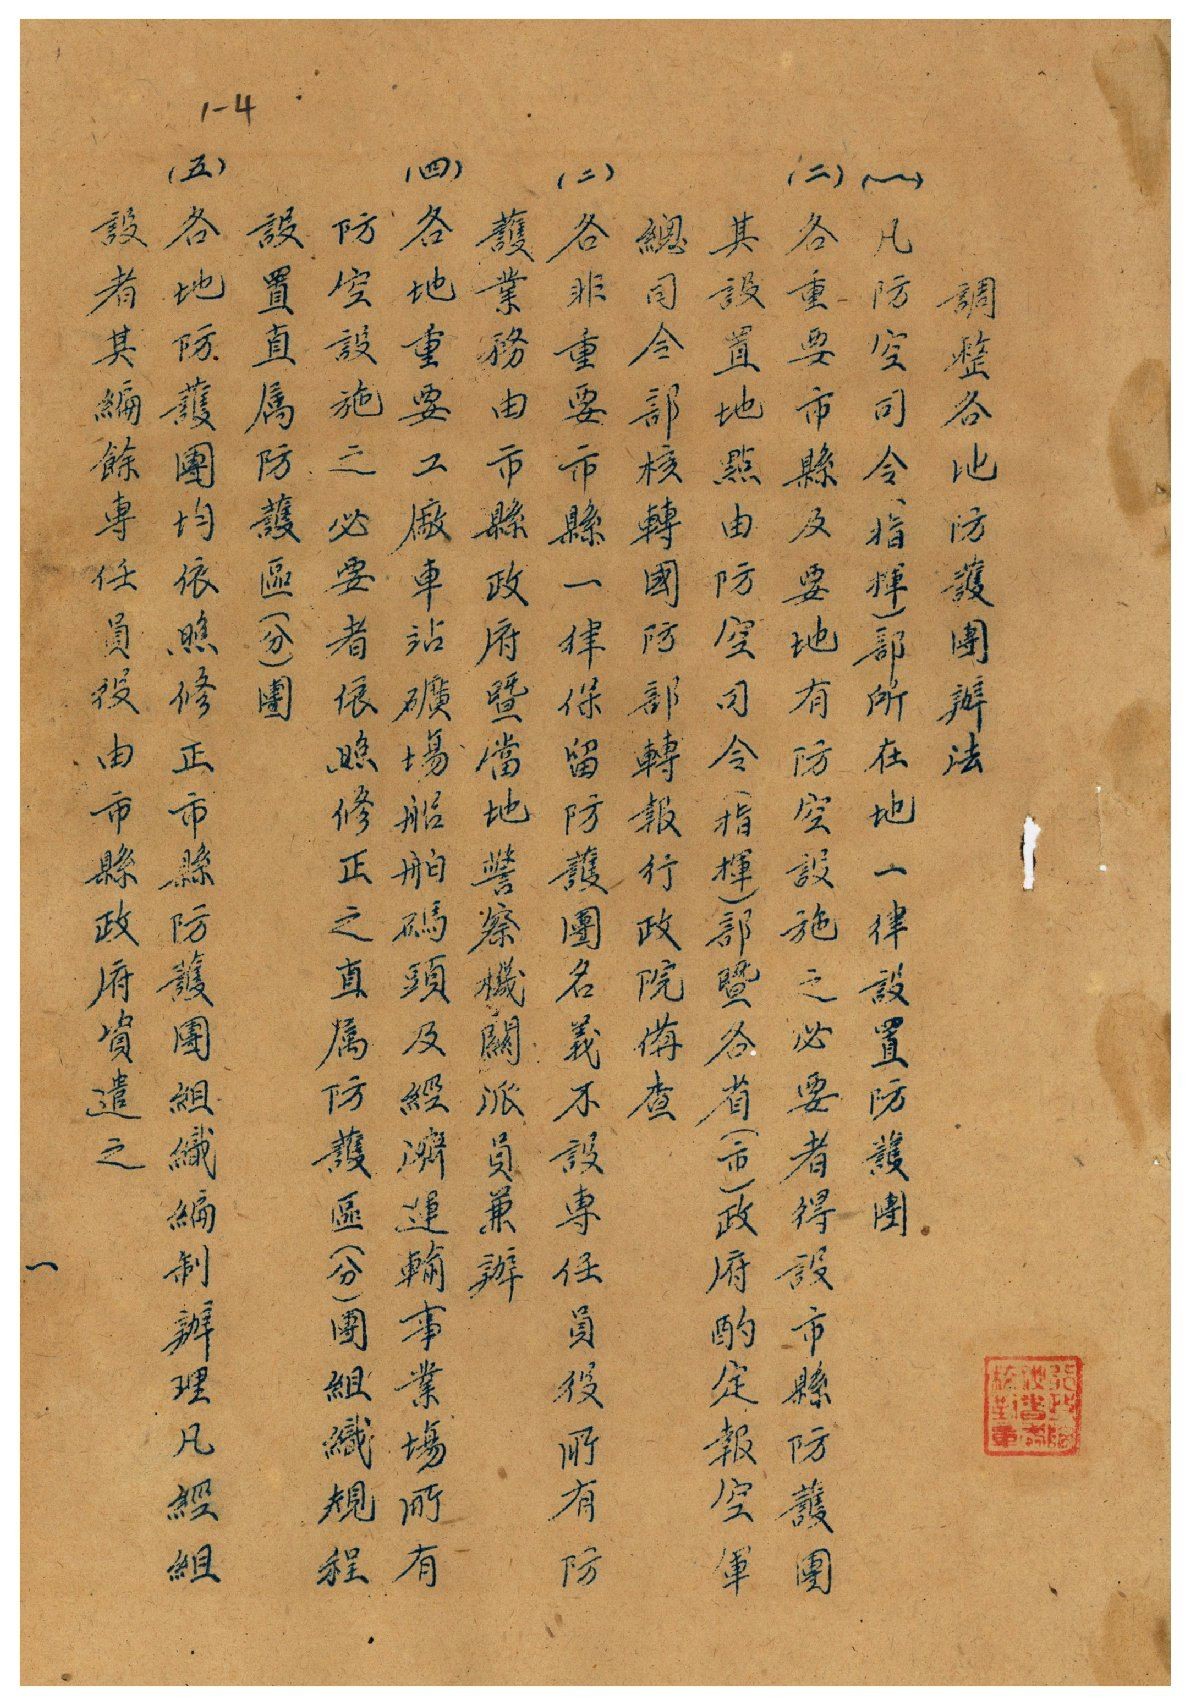 1-4
調整各地防護團辦法
(一)凡防空司令(指揮)部所在地一律設置防護團
(二)各重要市縣及要地有防空設施之必要者得設市縣防護團
其設置地點由防空司令(指揮)部暨各省(市)政府酌定報空軍
總司令部核轉國防部轉報行政院備查
(二)各非重要市縣一律保留防護團名義不設專任員役所有防
護業務由市縣政府暨當地警察機關派員兼辦
(四)各地重要工廠車站礦場船舶碼頭及經濟運輸事業場所有
防空設施之必要者依照修正之直属防護區(分)團組織規程
設置直属防護區(分)團
(五)各地防護團均依照修正市縣防護團組織編制辦理凡經組
設者其編餘專任員役由市縣政府資遣之
一